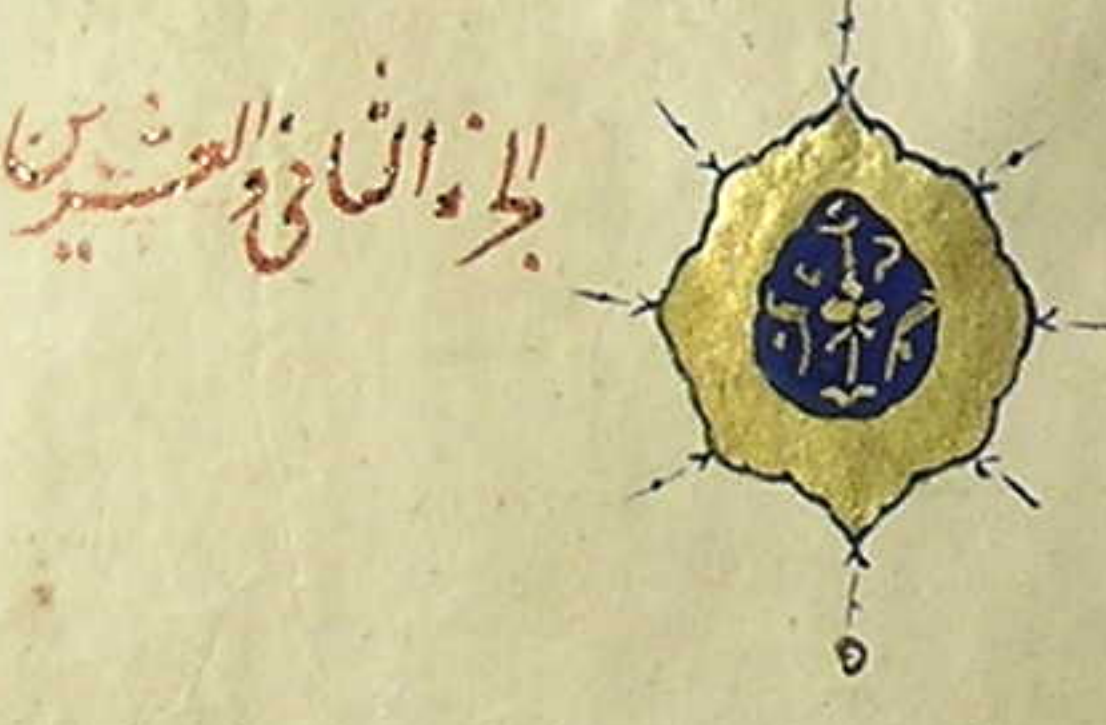 الجزء الثانی والعشرین